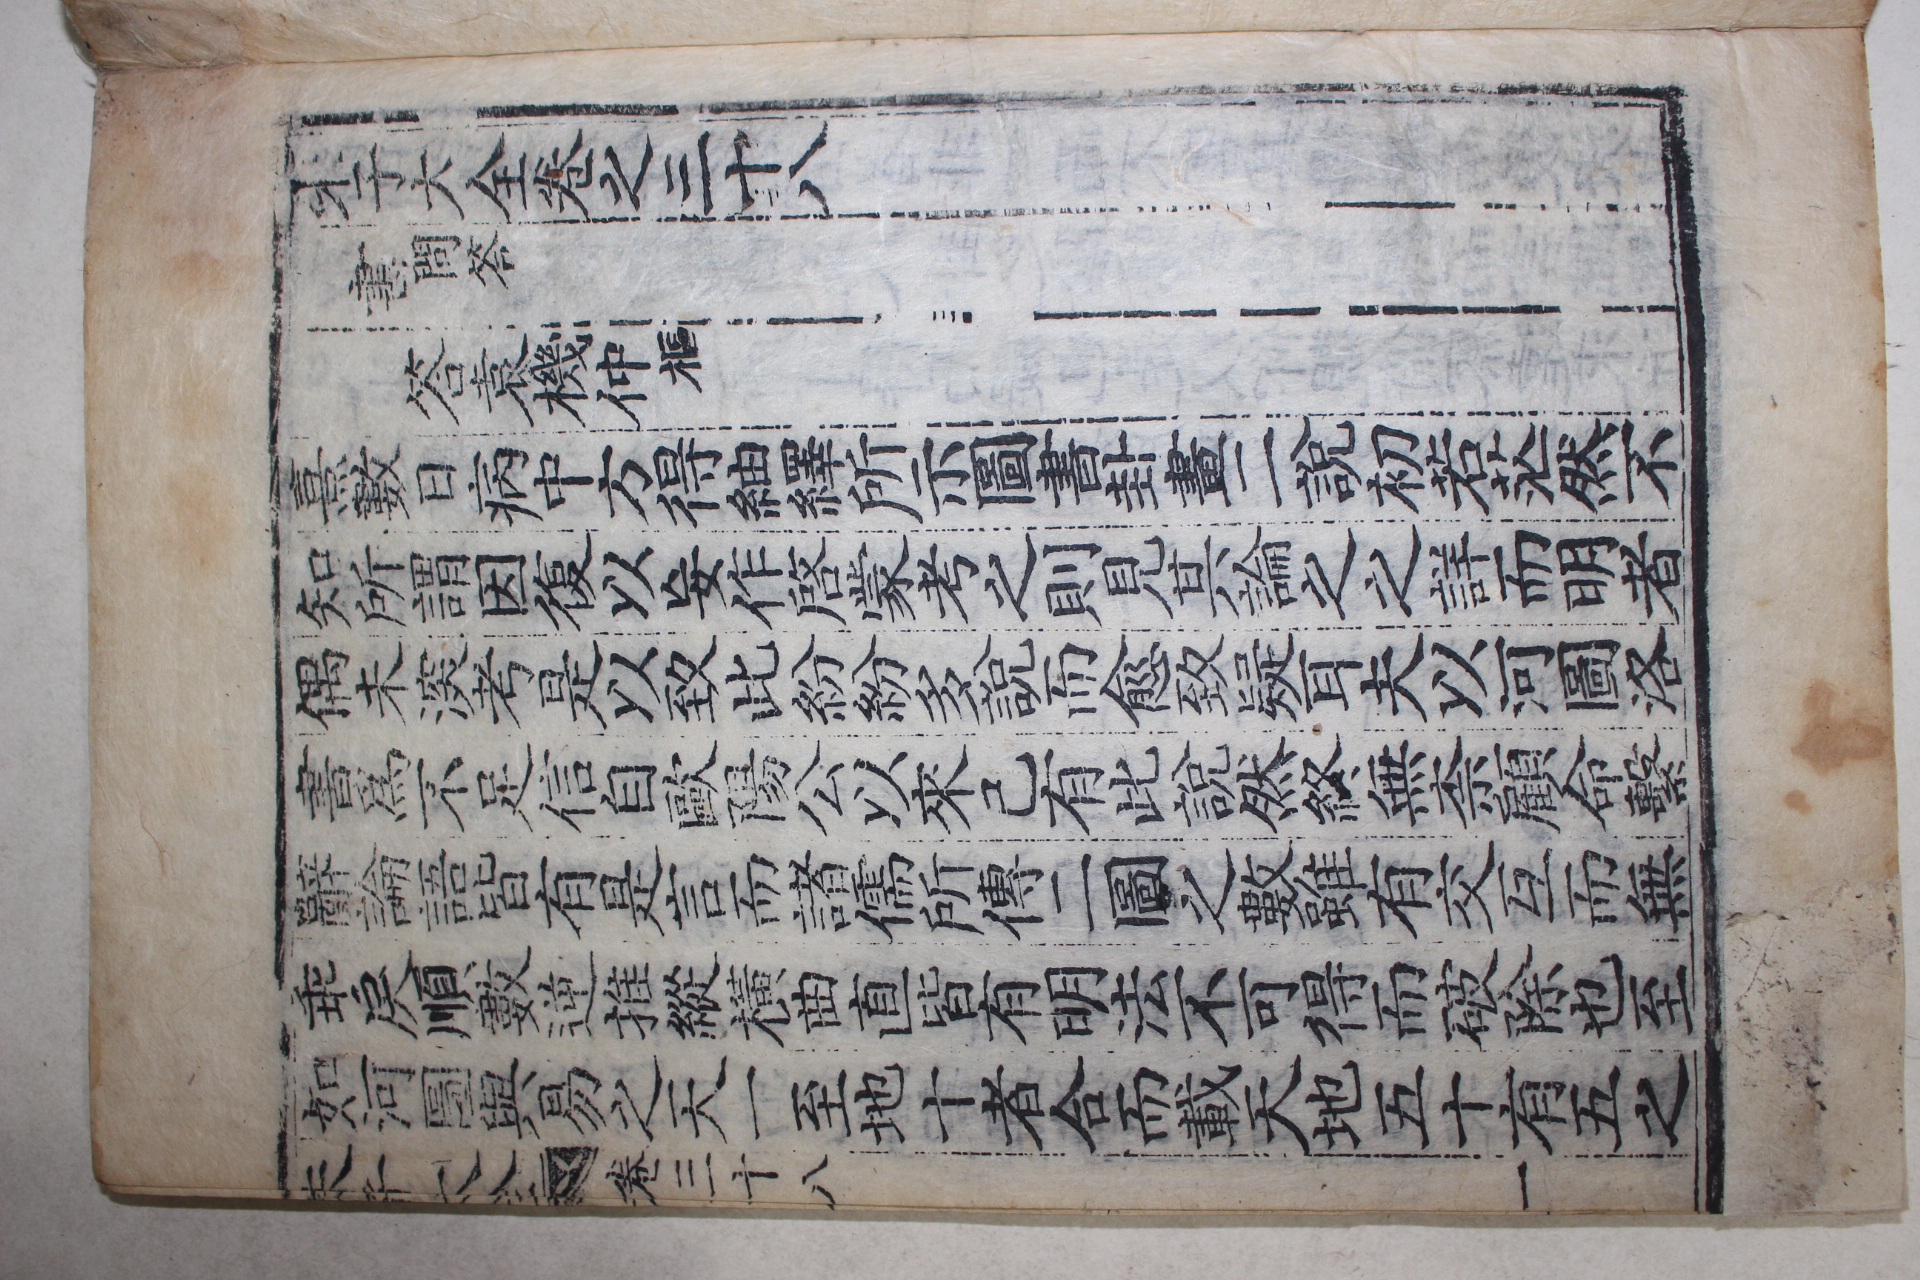 朱子大全卷之三十八
書問答
答袁機仲樞
熹數日病中方得紬繹所示圖書卦畫二說初若茫然不
知所謂因復以妄作啓蒙考之則見其論之之詳而明者
偶未深考是以致此紛紛多說而愈致疑耳夫以河圖洛
書爲不足信自歐陽公以來已有此說然終無奈顧命繫
辭論語皆有是言而諸儒所傳二圖之數雖有交互而無
乖戾順數逆推縱橫曲直皆有明法不可得而破除也至
如河圖與易之天一至地十者合而載天地五十有五之
朱子大全 卷三十八 一